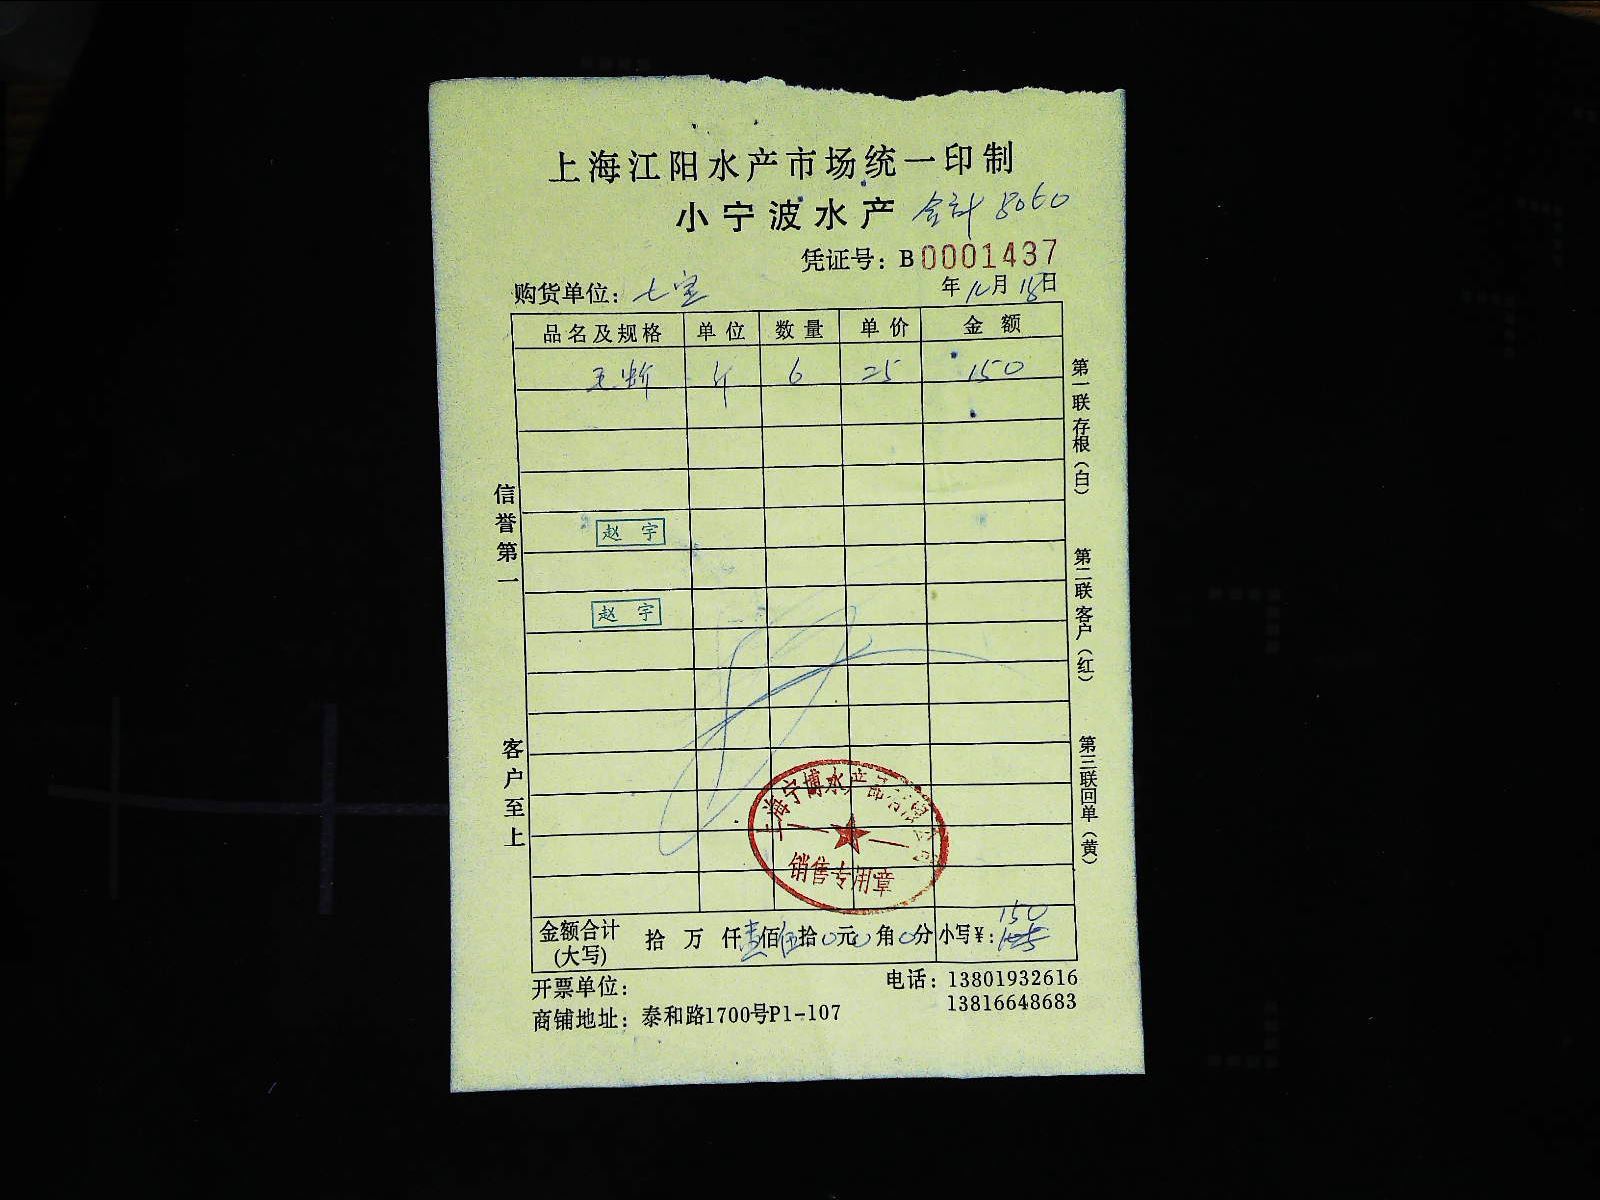 上海江阳水产市场统一印制
小宁波水产 合计 8060
凭证号：B0001437
购货单位：七宝 年12月18日
品名及规格 单位 数量 单价 金额
斤 6 25 150
赵宇
赵宇
信誉第一
客户至上
第一联存根（白）
第二联客户（红）
第三联回单（黄）
上海宁博水产品有限公司
销售专用章
金额合计（大写） 拾 万 仟壹佰伍拾0元0角0分 小写￥：150
开票单位： 电话：13801932616
13816648683
商铺地址：泰和路1700号P1-107